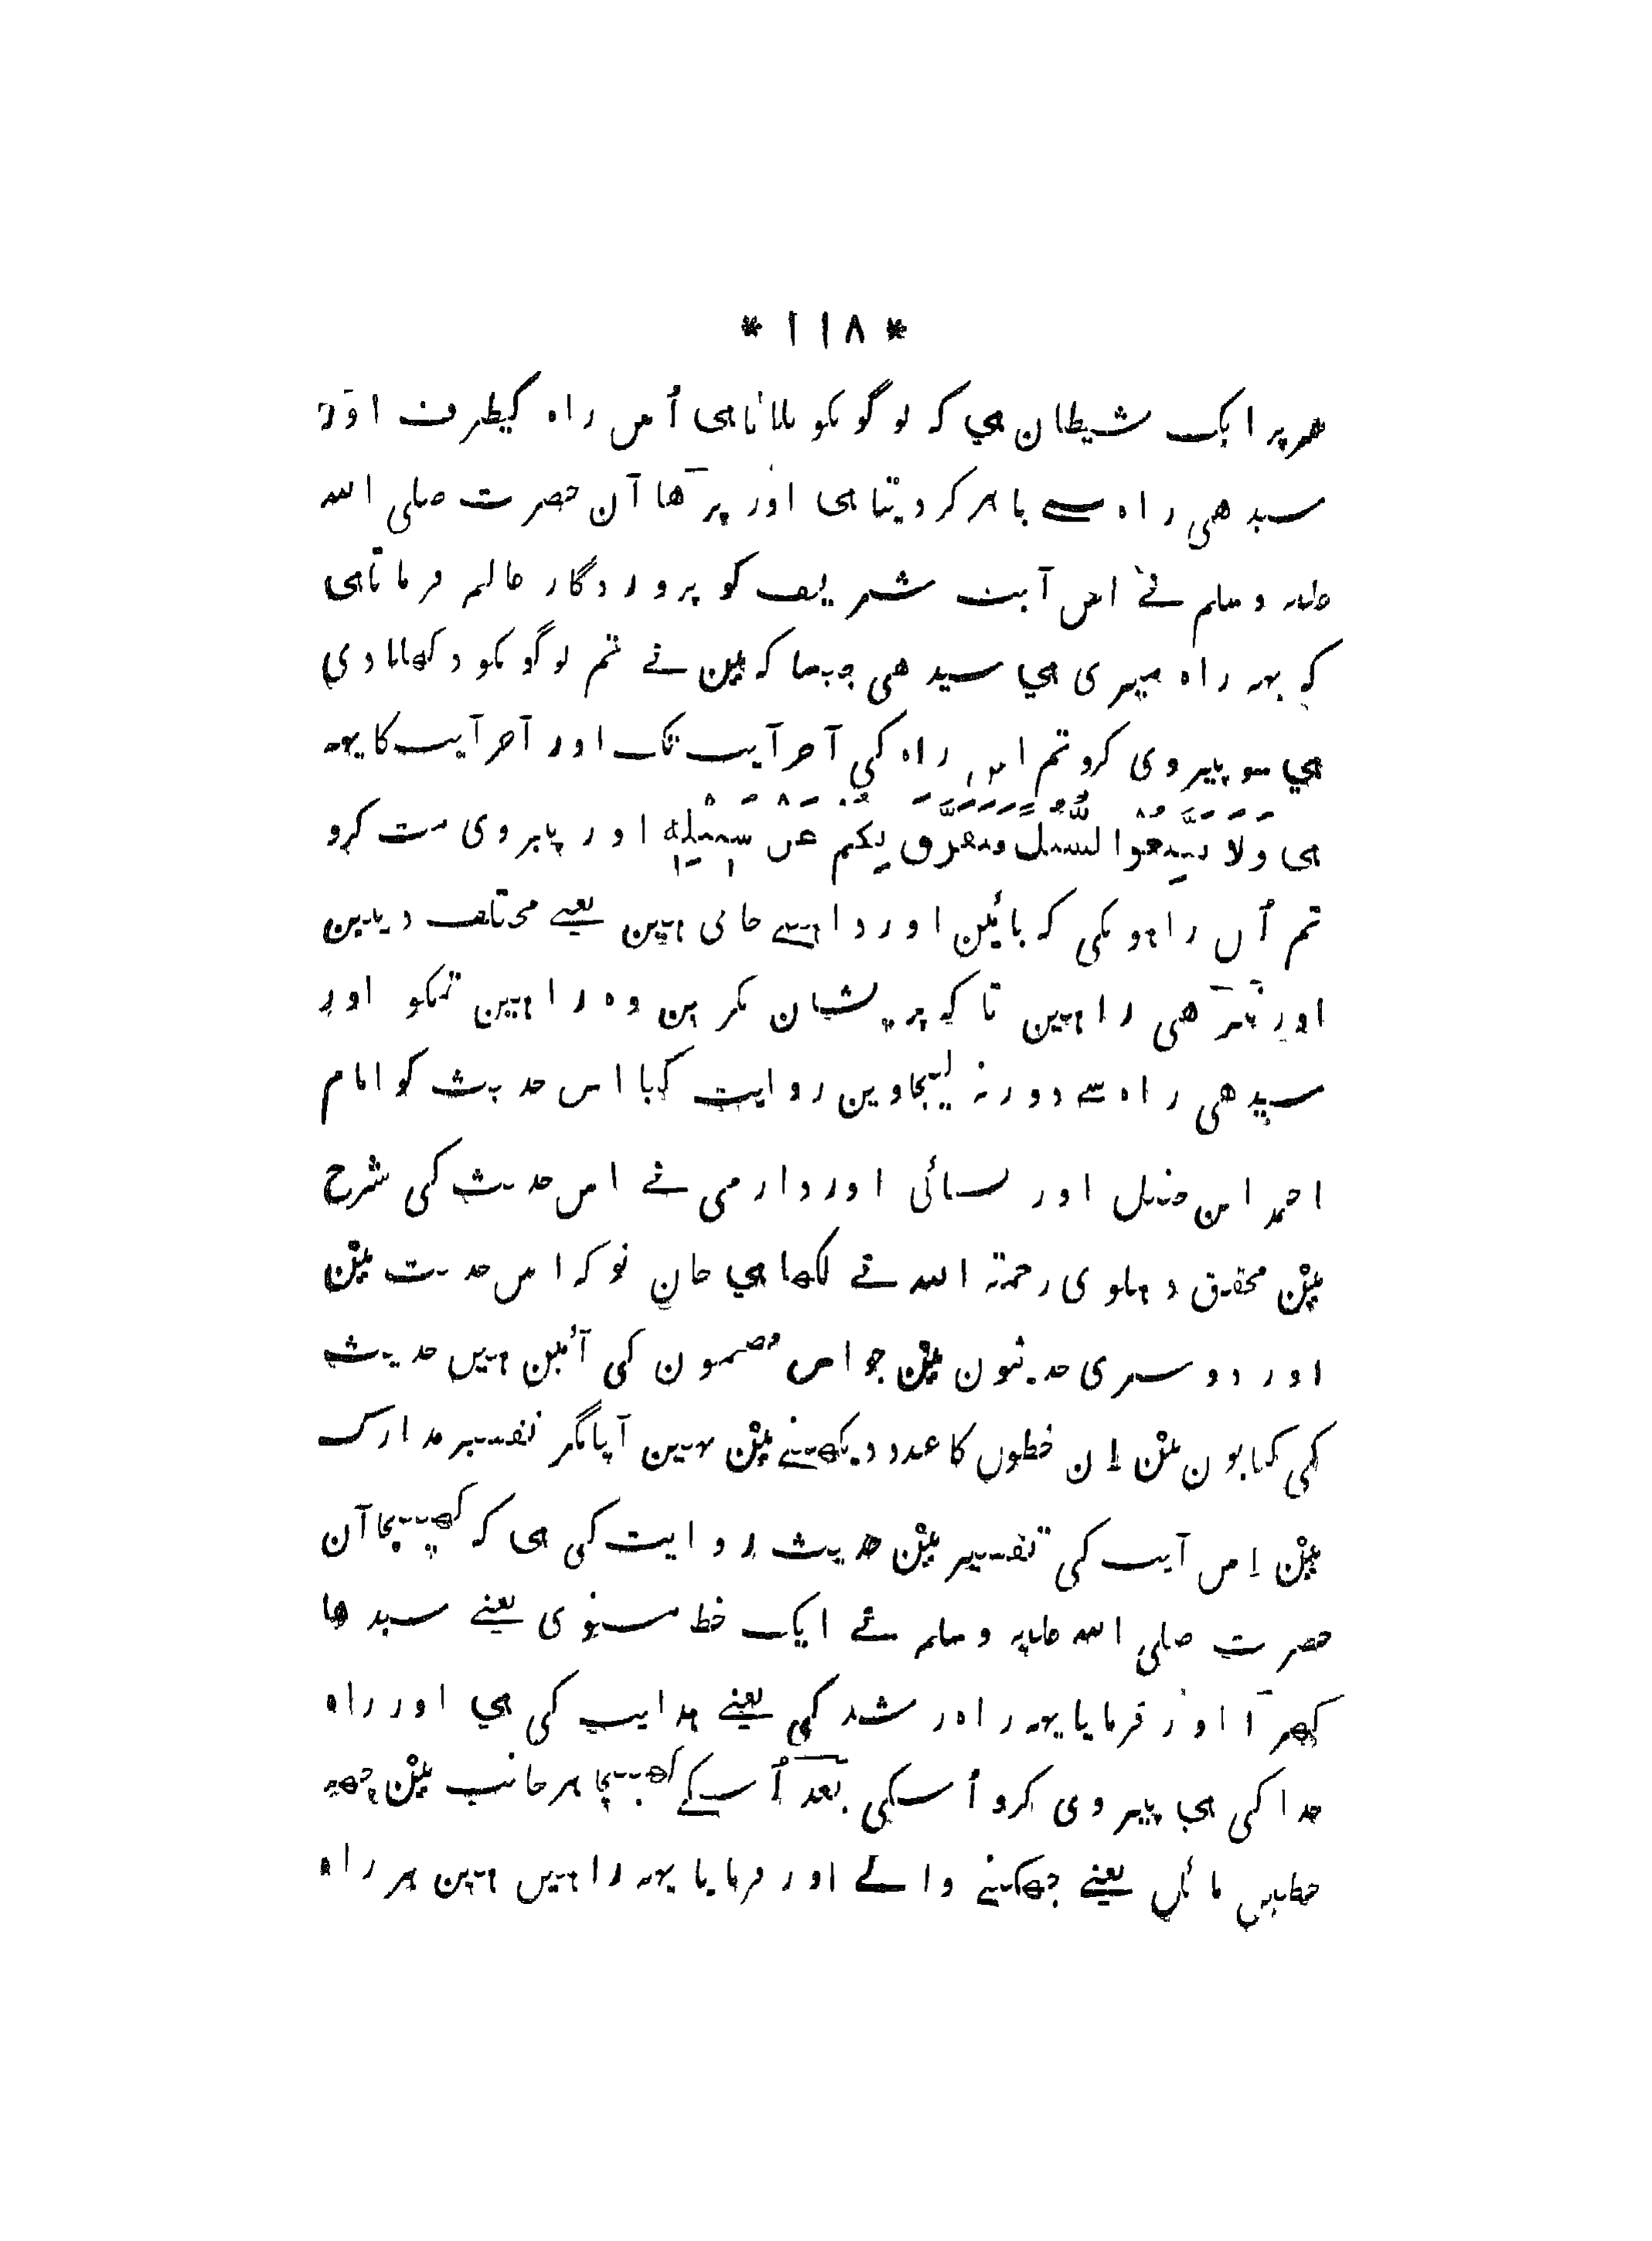 * ۱۱۸ *
هر پر ایک شیطان هی که لوگونکو بلاتا هی اُس راه کیطرف اور
سیدهی راه سے باهر کر دیتا هی اور پڑها آن حضرت صلی الله
علیه وسلم نے اس آیت شریف کو پروردگار عالم فرماتا هی
که یهه راه میری هی سیدهی جیسا که مین نے تم لوگونکو دکهلا دی
هی سو پیروی کرو تم اس راه کی آخر آیت تک اور آخر آیت کا یهه
هی وَلَا تَتَّبِعُوا السُّبُلَ فَتَفَرَّقَ بِكُمْ عَنْ سَبِيلِهِ اور پیروی مت کرو
تم اُن راهونکی که بائین اور داهنے جاتی هین یعنے مختلف دینین
اور ٹیڑهی راهین تا که پریشان نکرین وه راهین تمکو اور
سیدهی راه سے دور نه لیجاوین روایت کیا اس حدیث کو امام
احمد ابن حنبل اور نسائی اور دارمی نے اس حدیث کی شرح
مین محقق دهلوی رحمته الله نے لکها هی جان تو که اس حدیث مین
اور دوسری حدیثون مین جو اس مضمون کی آئین هین حدیث
کی کتابون مین اِن خطوں کا عدد دیکهنے مین نہین آیا مگر تفسیر مدارک
مین اِس آیت کی تفسیر مین حدیث روایت کی هی که کهینچا آن
حضرت صلی الله علیه وسلم نے ایک خط مستوی یعنے سیدها
کهڑا اور فرمایا یهه راه رشد کی یعنے هدایت کی هی اور راه
خدا کی هی پیروی کرو اُسکی بعد اُسکے کهینچا هر جانب مین چهه
خطین مائل یعنے جهکنے والے اور فرمایا یهه راهین هین هر راه